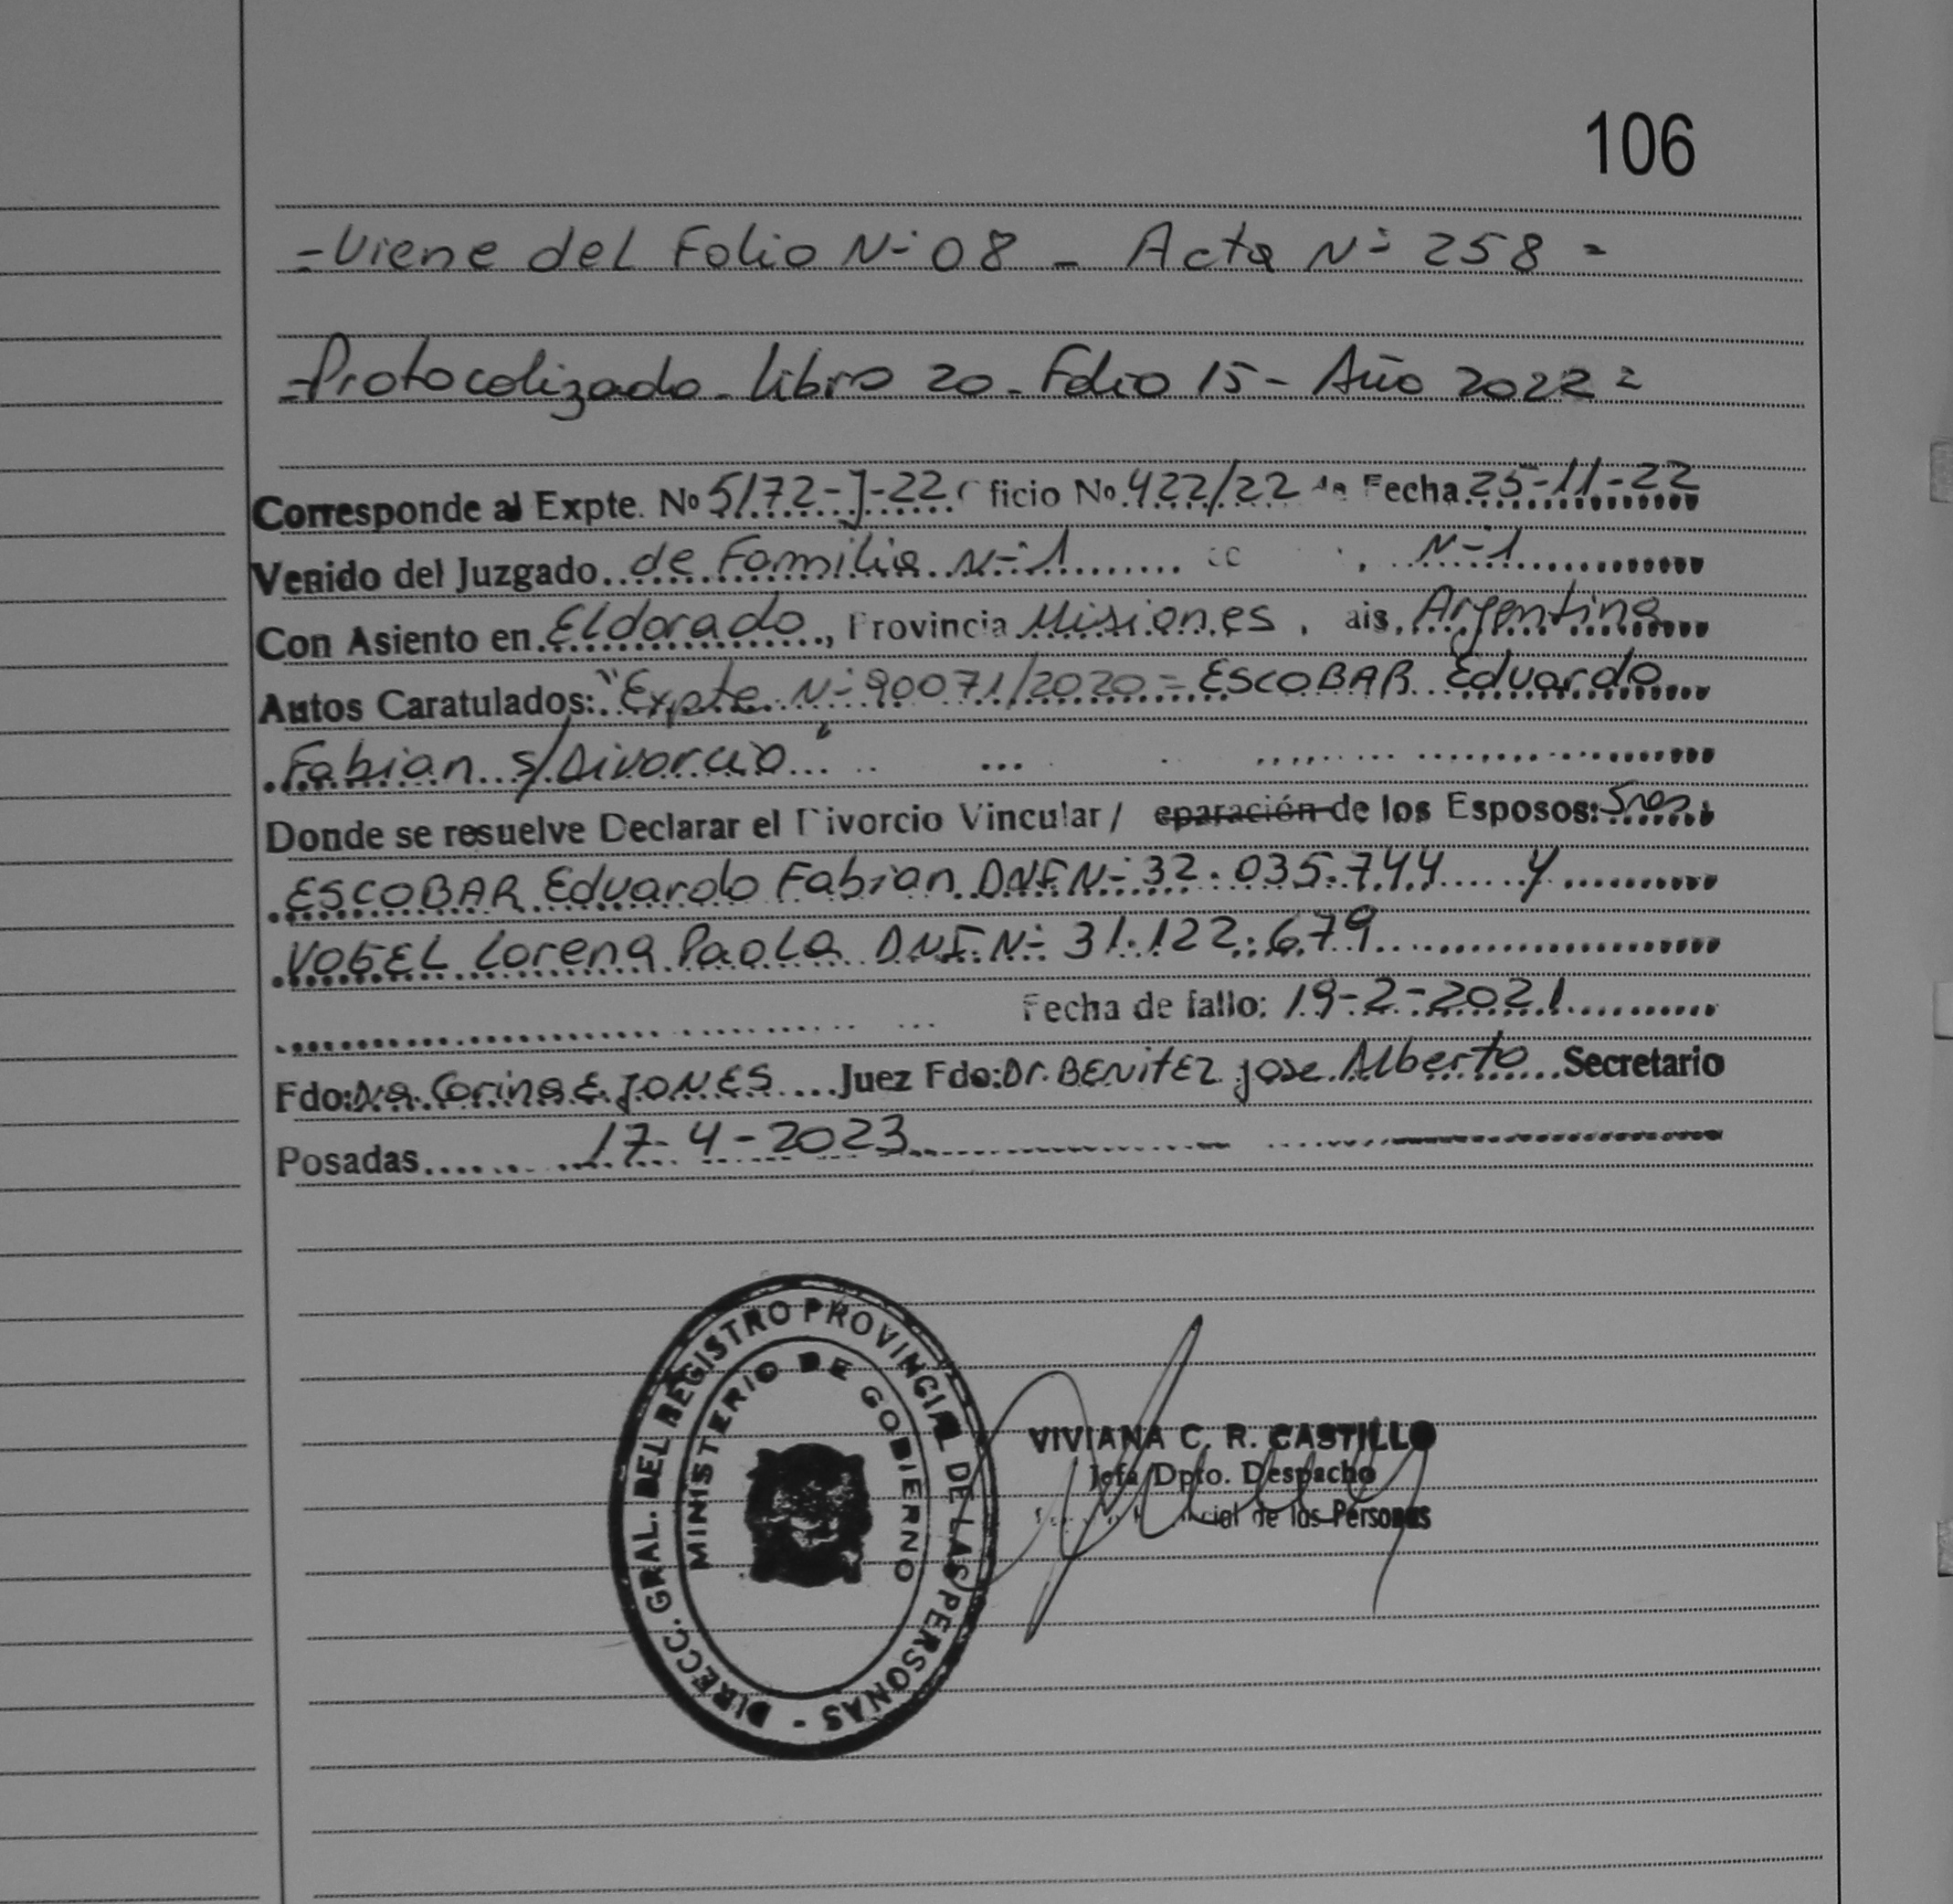 106
=Viene del Folio Nº 08 - Acta Nº 258 =
=Protocolizado - libro 20 - Folio 15 - Año 2022 =
Corresponde al Expte. No 5172-J-22 ficio No 422/22 de Fecha 25-11-22
Venido del Juzgado de Familia Nº 1 Nº 1
Con Asiento en Eldorado, Provincia Misiones, ais Argentina
Autos Caratulados: "Expte Nº 90071/2020 = ESCOBAR Eduardo
Fabian s/Divorcio"
Donde se resuelve Declarar el Divorcio Vincular / eparación de los Esposos: Sres.
ESCOBAR Eduardo Fabian DNI Nº 32.035.744 y
VOGEL Lorena Paola DNI Nº 31.122.679
Fecha de fallo: 19-2-2021
Fdo: Dra. Corina E JONES Juez Fdo: Dr. BENITEZ jose Alberto Secretario
Posadas 17-4-2023
DIRECC. GRAL. DEL REGISTRO PROVINCIAL DE LAS PERSONAS -
MINISTERIO DE GOBIERNO
VIVIANA C. R. CASTILLO
Jefa Dpto. Despacho
cial de las Personas